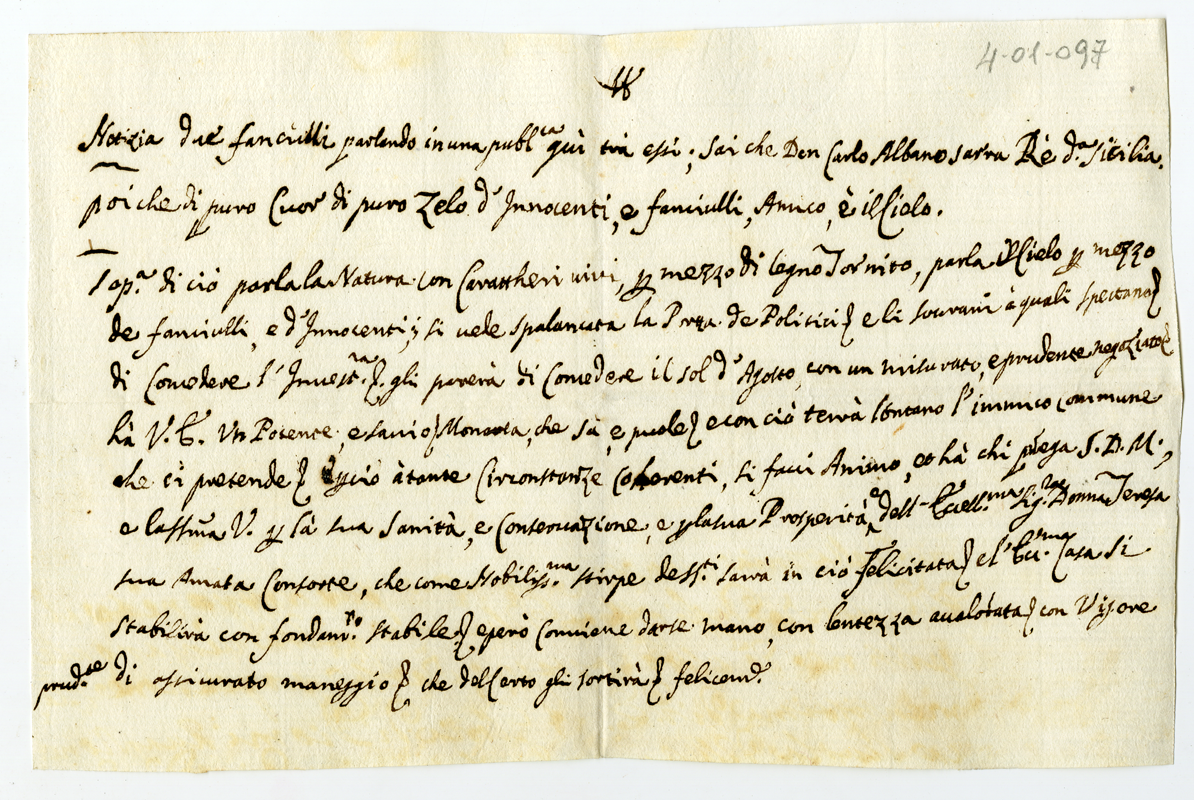 4-01-097
Notizia due fanciulli parlando in una publ.ca quì trà essi; sai che Don Carlo Albano sarra Rè d.a Sicilia.
poi che di puro Cuor di puro Zelo d'Innocenti, e fanciulli, Amico, è il Cielo.
Sop.a di ciò parla la Natura con Carattheri vivi, p mezzo di legno Tornito, parla il Cielo p mezzo
de fanciulli, e d'Innocenti; si vede spalancata la de Politici e li sovrani à quali spectano
di Concedere l' gli parerà di Concedere il sol d'Agosto, con un misurato, e prudente negoziato
hà V.E. Un Potente, e savio Monarca, che sà, e puole e con ciò terrà lontano l'inimico commune
che ci pretende àtante Circonstanze Coherenti, si facci Animo, et hà chi priega S.D.M.,
e lassma V. p la sua Sanità, e Conservazione, e p la sua Prosperità, e dell' Eccell.ma Sig.ra Donna Teresa
sua Amata Consorte, che come Nobiliss.ma stirpe sarà in ciò Felicitata e l' Ecc.ma Casa si
stabilirà con fondam.to stabile e però Conviene darse mano, con lentezza avalorata con Vigore
prud.te di assicurato maneggio che del Certo gli sortirà felicem.e